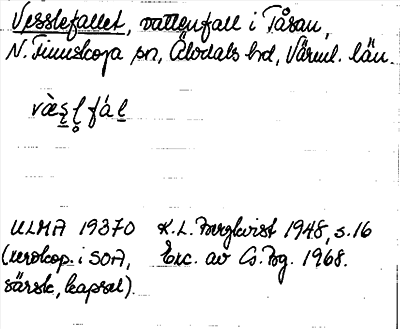 Vesslefallet, vattenfall i Tåsan,
N. Finnskoga sn, Älvdals hd, Värml. län.
væ̀s̲l̥ fál̲
ULMA 19370 K.L. Bergkvist 1948, s. 16
(xerokop. i SOA, Exc. av Cs. Bg. 1968.
särsk, kapsel).